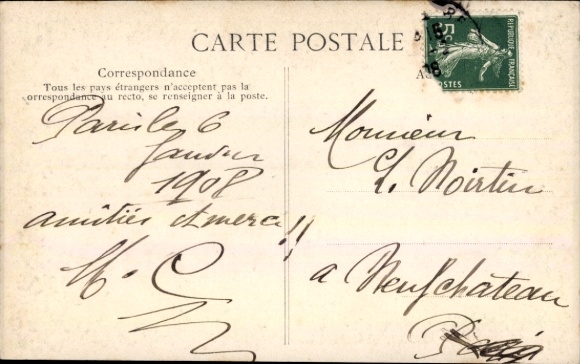 CARTE POSTALE
Correspondance
Tous les pays étrangers n'acceptent pas la
correspondance au recto, se renseigner à la poste.
Paris le 6
Janvier
1908
amitiés et merci !!
RÉPUBLIQUE FRANÇAISE
5c
POSTES
Monsieur
L. Noirtin
à Neufchateau